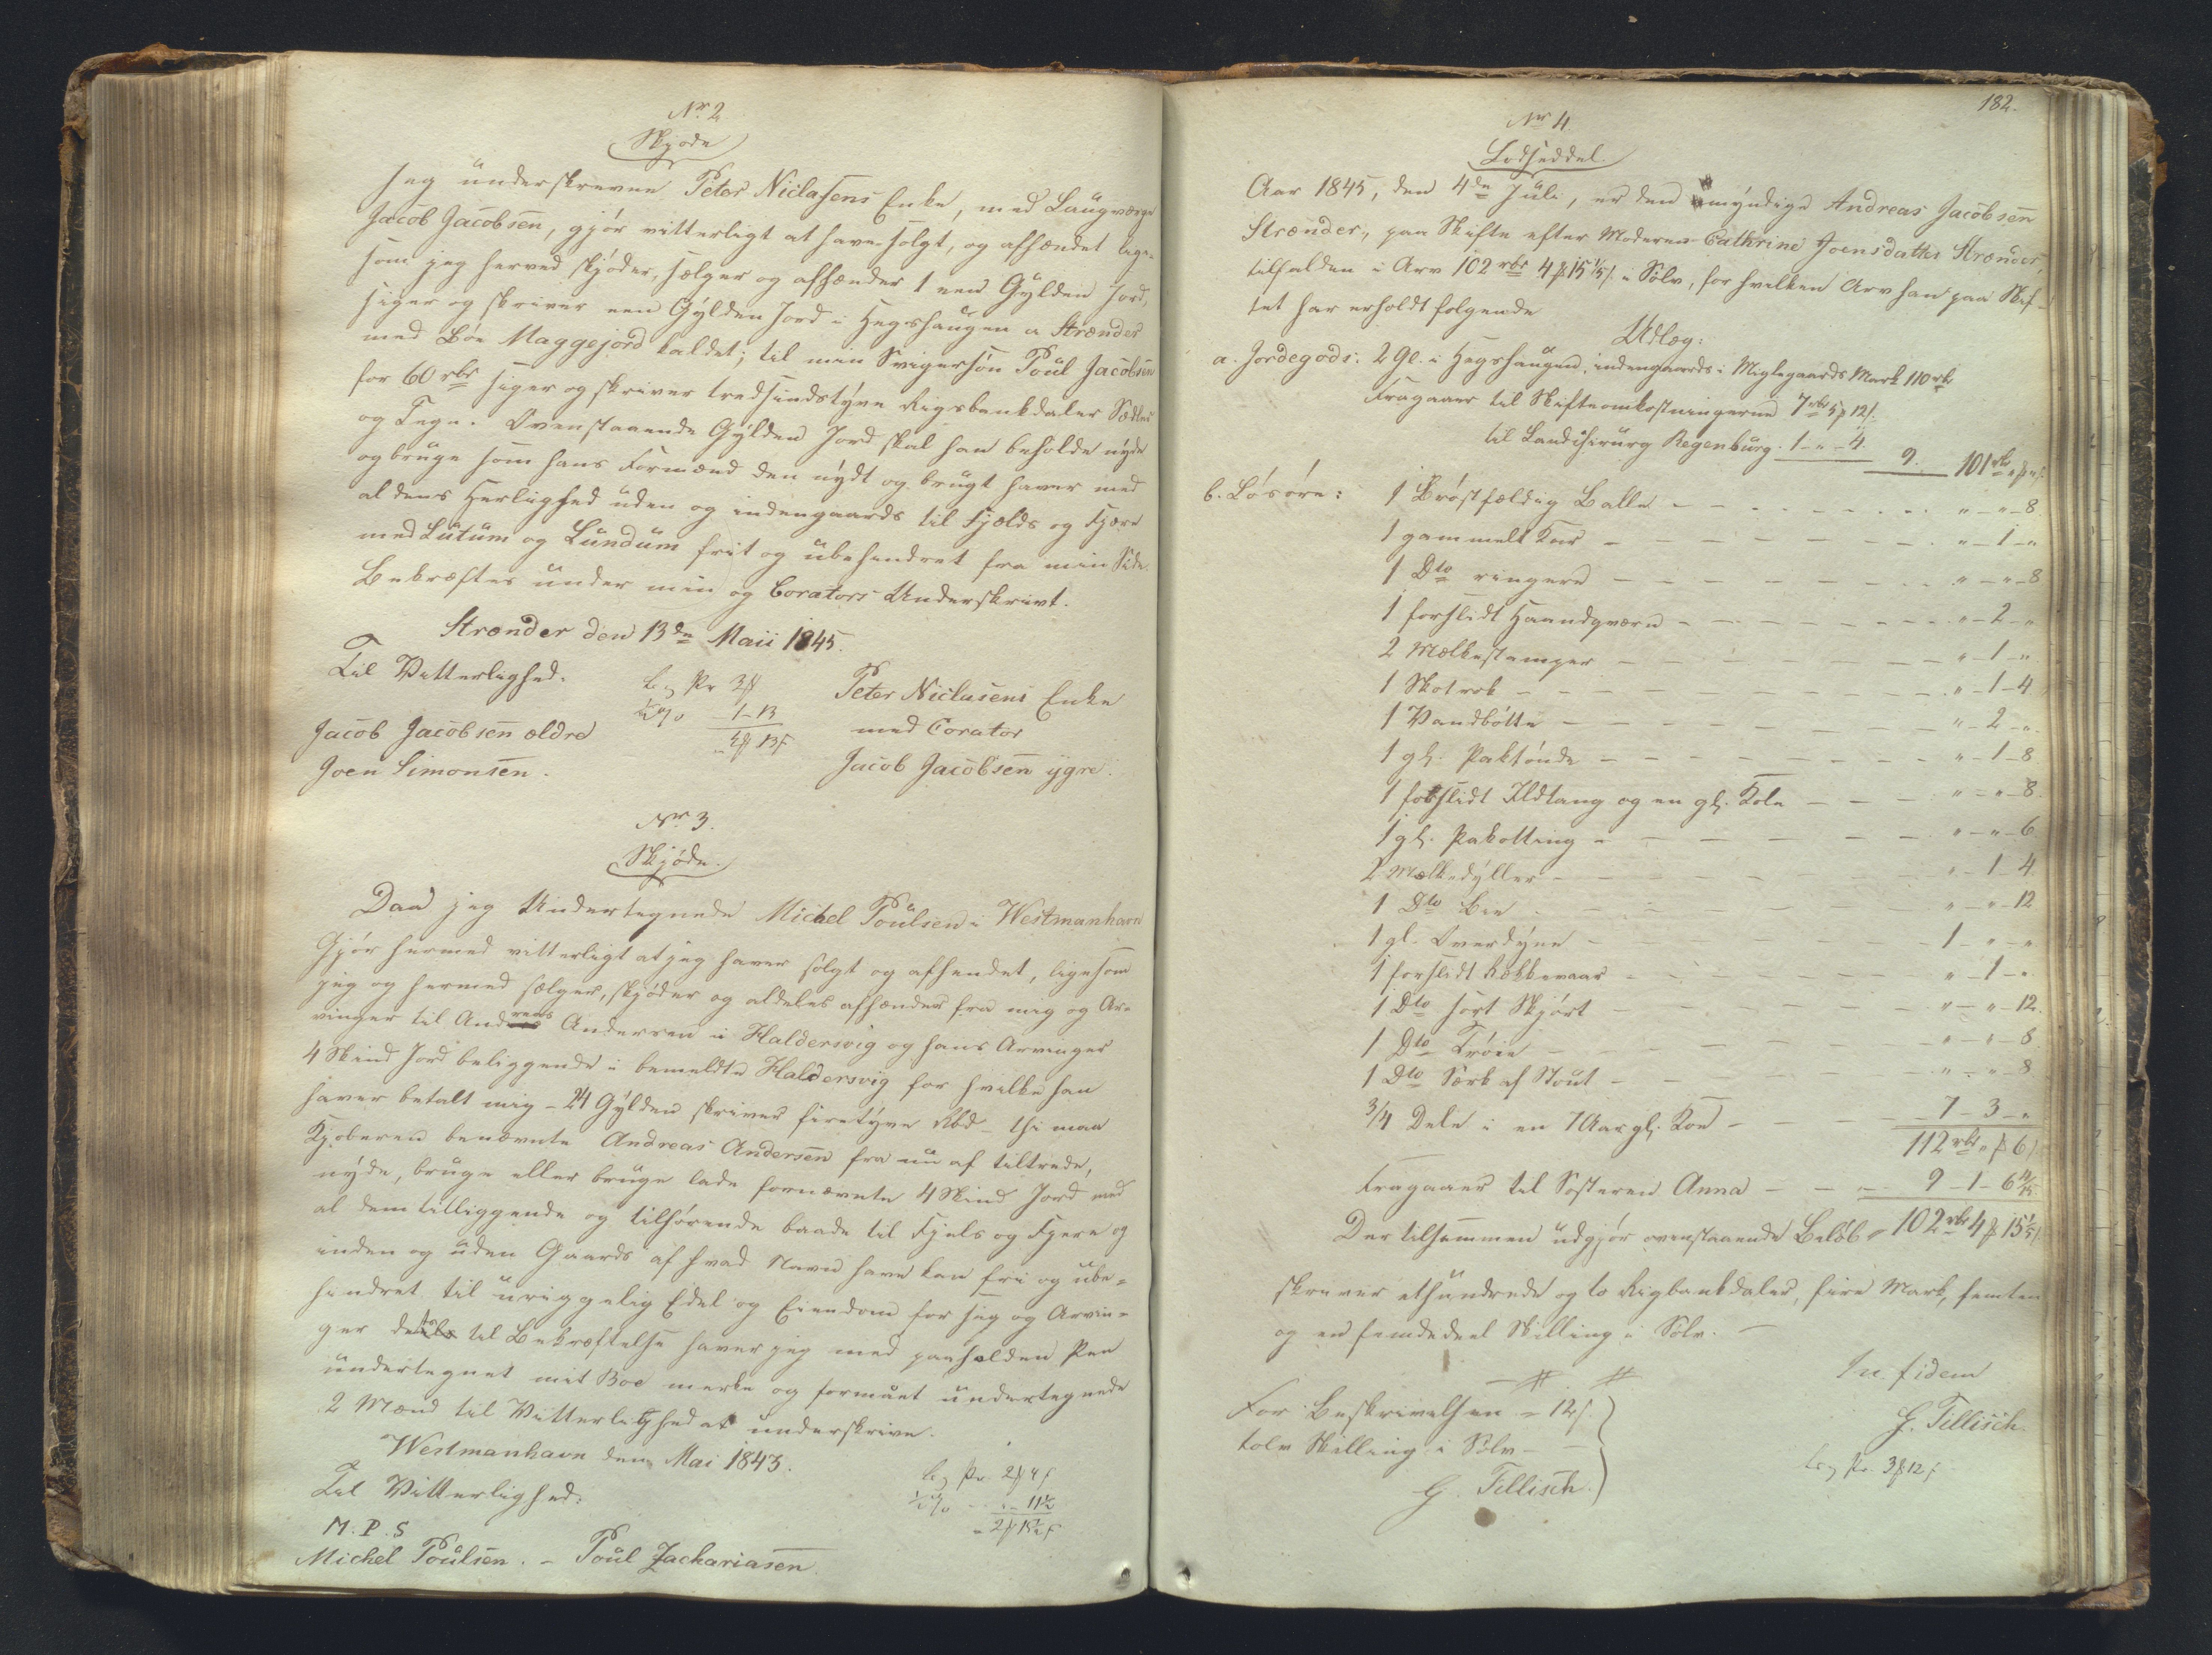 Nr. 2
Skjøde
Jeg underskrevne Peter Niclasens Enke, med Laugværge
Jacob Jacobsen, gjør vitterligt at have solgt, og afhændet lige-
som jeg herved skjøder, sælger og afhænder 1 een Gylden Jord,
siger og skriver een Gylden Jord i Hegshaugen a Strænder
med Bøe Maggejord kaldet; til min Svigersøn Poul Jacobsen
for 60 rbr siger og skriver tredsindstyve Rigsbankdaler Sædler
og Tegn. Ovenstaaende Gylden Jord skal han beholde nyde
og bruge som hans Formænd den nydt og brugt haver med
al dens Herlighed uden og indengaards til Fjælds og Fjære
med Lutum og Lundum frit og ubehindret fra min Side.
Bekræftes under min og Corators Underskrivt.
Strænder den 13de Maii 1845.
Til Vitterlighed.
Peter Niclasens Enke
Jacob Jacobsen ældre
med Corator
Joen Simonsen.
Jacob Jacobsen ÿgre.
Leg Pr 2 ꟙ
½ % 1-13
Nr. 3.
Skjøde.
Daa jeg Undertegnede Michel Poulsen i Westmanhavn
Gjør hermed vitterligt at jeg haver solgt og afhendet, ligesom
jeg og hermed sælger, skjøder og aldeles afhænder fra mig og Ar-
vinger til Andreas Andersen i Haldersvig og hans Arvinger
4 Skind Jord beliggende i bemeldte Haldersvig for hvilke han
haver betalt mig - 24 Gylden skriver firetyve Rbd - thi maa
Kjøberen benævnte Andreas Andersen fra nu af tiltrede,
nyde, bruge eller bruge lade fornævnte 4 Skind Jord med
al dem tilliggende og tilhørende baade til Fjels og Fjere og
inden og uden Gaards af hvad Navn have kan fri og ube-
hindret til uriggelig Edel og Eiendom for sig og Arvin-
ger dets til Bekræftelse haver jeg med paaholden Pen
undertegnet mit Boe merke og formaaet undertegnede
2 Mænd til Vitterlighed at underskrive.
Westmanhavn den Mai 1845.
Til Vitterlighed:
M. P. S
Michel Poulsen. - Poul Zachariasen
Leg Pr. 2 ꟙ 4 s
½ % 11½
2 ꟙ 15½ s
182.
Nr 4.
Lodseddel.
Aar 1845, den 4de Juli, er den umyndige Andreas Jacobsen
Strænder, paa Skifte efter Moderen Cathrine Joensdatter Strænder,
tilfalden i Arv 102 rbr 4 ꟙ 15 1/5 s. i Sølv, for hvilken Arv han paa Skif-
tet har erholdt følgende
Udlæg:
a. Jordegods: 2 Gl. i Hegshaugen, indengaards i Miglegaards Mark 110 rbr
Fragaaer til Skifteomkostningerne 7 rbr 5 ꟙ 12 s.
til Landchirurg Regenburg. 1 - „ - 4 9. 101 rbr „ ꟙ „ s.
b. Løsøre: 1 Brøstfældig Balle - - - „ - „ - 8.
1 gammelt Kar - - - „ - 1 - „
1 Dto ringere - - - „ - „ - 8
1 forslidt Haandqværn - - - „ - 2 - „
2 Mælkestamper - - - „ - 1 - „.
1 Skotrok - - - „ - 1 - 4
1 Vandbøtte - - - „ - 2 - „.
1 gl. Paktønde - - - „ - 1 - 8
1 forslidt Ildtang og en gl. Kole - - - „ - „ - 8.
1 gl. Pakotting - - - „ - „ - 6
2 Mælkedyller - - - „ - 1 - 4.
1 Dto - - - „ - „ - 12
1 gl. Overdyne - - - 1 - „ - „
1 forslidt - - - „ - 1 - „
1 Dto sort Skjørt - - - „ - „ - 12.
1 Dto Trøie - - - „ - „ - 8
1 Dto Særk af Stout - - - „ - „ - 8
3/4 Dele i en 7 Aar gl. Koe - - - 7 - 3 - „
112 rbr „ ꟙ 6 s
Fragaaer til Søsteren Anna - - - 9 - 1 - 6 4/5
Der tilsammen udgjør ovenstaaende Beløb „ 102 rbr 4 ꟙ 15 1/5 s.
skriver ethundrede og to Rigbankdaler, fire Mark, femten
og en femdedeel Skilling i Sølv. -
In fidem
G. Tillisch.
For Beskrivelsen - 12 s.
tolv Skilling i Sølv -
G. Tillisch.
Leg Pr. 3 ꟙ 12 s